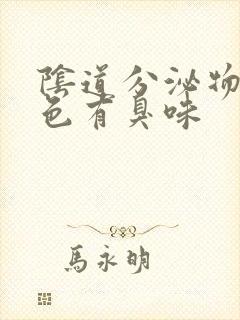 陰道分泌物
色有臭味
馬永明